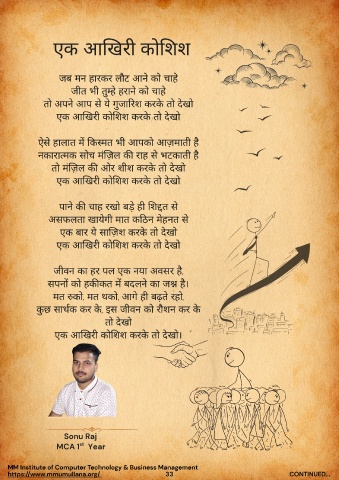 एक आखिरी कोशिश
जब मन हारकर लौट आने को चाहे
जीत भी तुम्हे हराने को चाहे
तो अपने आप से ये गुजारिश करके तो देखो
एक आखिरी कोशिश करके तो देखो
ऐसे हालात में किस्मत भी आपको आज़माती है
नकारात्मक सोच मंज़िल की राह से भटकाती है
तो मंज़िल की ओर शीश करके तो देखो
एक आखिरी कोशिश करके तो देखो
पाने की चाह रखो बड़े ही शिद्दत से
असफलता खायेगी मात कठिन मेहनत से
एक बार ये साज़िश करके तो देखो
एक आखिरी कोशिश करके तो देखो
जीवन का हर पल एक नया अवसर है,
सपनों को हकीकत में बदलने का जश्न है।
मत रुको, मत थको, आगे ही बढ़ते रहो,
कुछ सार्थक कर के, इस जीवन को रौशन कर के
तो देखो
एक आखिरी कोशिश करके तो देखो।
Sonu Raj
MCA 1st Year
MM Institute of Computer Technology & Business Management
https://www.mmumullana.org/
33
CONTINUED...